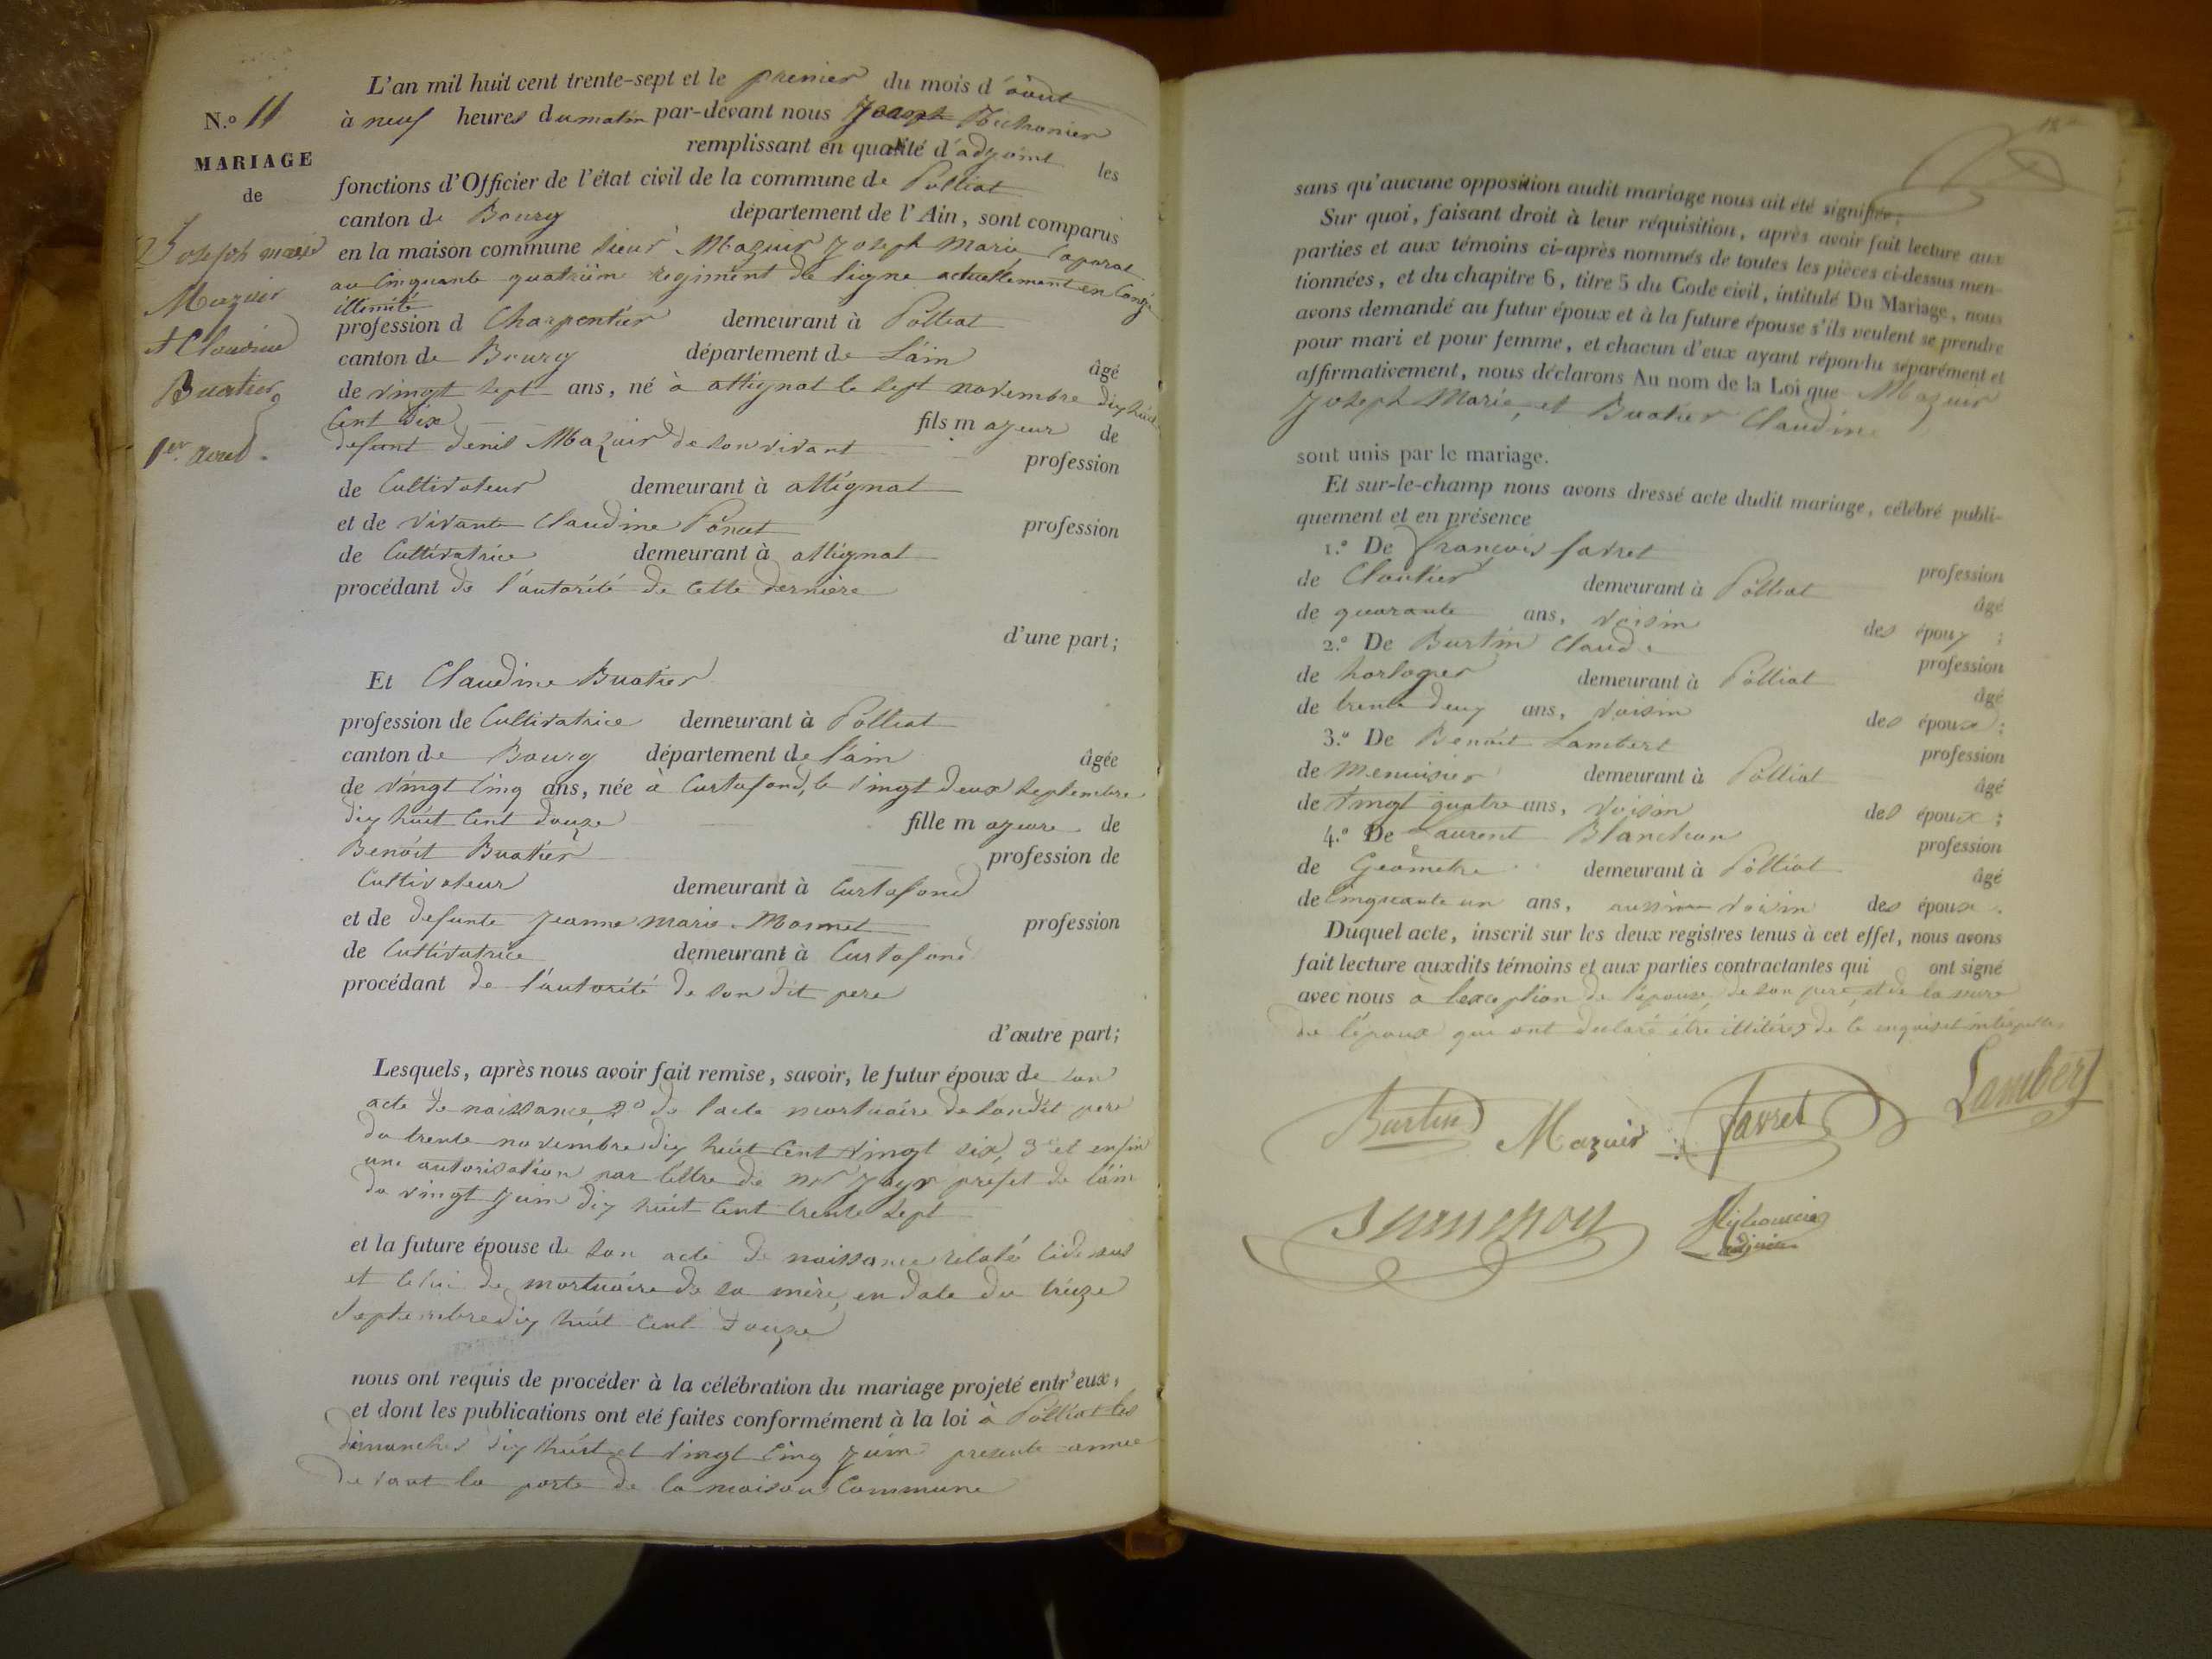 L'an mil huit cent trente-sept et le premier du mois d'aout
N.º 11
à neuf heures du matin par-devant nous Joseph
MARIAGE
remplissant en qualité d'adjoint les
de
fonctions d'Officier de l'état civil de la commune de Polliat
canton de Bourg département de l'Ain, sont comparus
Joseph marie
en la maison commune sieur Mazuir Joseph Marie, Caporal
au cinquante quatrièm regiment de ligne actuellement en Congé
Mazuir
illimité
profession d Charpentier demeurant à Polliat
et Claudine
canton de Bourg département de Lain âgé
Buatier
de vingt sept ans, né à attignat le sept novembre dix huit
Cent dix fils majeur de
1er aout.
defunt denis Mazuir de son vivant profession
de Cultivateur demeurant à attignat
et de vivante Claudine Poncet profession
de Cultivatrice demeurant à attignat
procédant de l'autorité de cette dernière
d'une part;
Et Claudine Buatier
profession de Cultivatrice demeurant à Polliat
canton de Bourg département de l'ain âgée
de vingt cinq ans, née à Curtafond, le vingt deux septembre
dix huit cent douze fille majeure de
Benoit Buatier profession de
Cultivateur demeurant à Curtafond
et de defunte Jeanne Marie Monnet profession
de Cultivatrice demeurant à Curtafond
procédant de l'autorité de son dit pere
d'autre part;
Lesquels, après nous avoir fait remise, savoir, le futur époux de son
acte de naissance, 2º de l'acte mortuaire de sondit pere
du trente novembre dix huit cent vingt six, 3º et enfin
une autorisation par lettre de Mr Jayr prefet de l'ain
du vingt juin dix huit cent trente sept
et la future épouse de son acte de naissance relaté cidessus
et celui de mortuaire de sa mère, en date du treize
Septembre dix huit cent douze
nous ont requis de procéder à la célébration du mariage projeté entr'eux,
et dont les publications ont été faites conformément à la loi à Polliat les
dimanches dix huit et vingt cinq juin presente annee
devant la porte de la maison Commune
sans qu'aucune opposition audit mariage nous ait été signifiée;
Sur quoi, faisant droit à leur réquisition, après avoir fait lecture aux
parties et aux témoins ci-après nommés de toutes les pièces ci-dessus men-
tionnées, et du chapitre 6, titre 5 du Code civil, intitulé Du Mariage, nous
avons demandé au futur époux et à la future épouse s'ils veulent se prendre
pour mari et pour femme, et chacun d'eux ayant répondu séparément et
affirmativement, nous déclarons Au nom de la Loi que Mazuir
Joseph Marie, et Buatier Claudine
sont unis par le mariage.
Et sur-le-champ nous avons dressé acte dudit mariage, célébré publi-
quement et en présence
1.º De françois favret profession
de Cloutier demeurant à Polliat âgé
de quarante ans, voisin des epoux ;
2.º De Burtin Claude profession
de horloger demeurant à Polliat âgé
de trente deux ans, voisin des époux ;
3.º De Benoit Lambert profession
de Menuisier demeurant à Polliat âgé
de vingt quatre ans, voisin des époux ;
4.º De Laurent Blanchon profession
de Geometre demeurant à Polliat âgé
de Cinquante un ans, voisin des époux.
Duquel acte, inscrit sur les deux registres tenus à cet effet, nous avons
fait lecture auxdits témoins et aux parties contractantes qui ont signé
avec nous à lexception de l'epouse, de son pere, et de la mere
de l'epoux qui ont declaré être illitérés de ce enquis et interpellés
Burtin Mazuir favret Lambert
adjoint